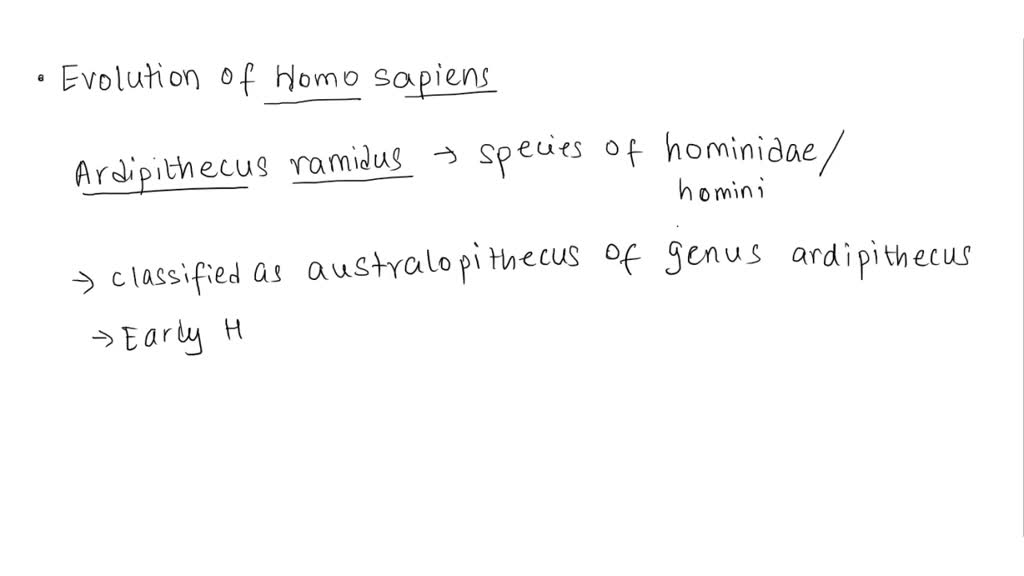 • Evolution of Homo sapiens
Ardipithecus ramidus → species of hominidae/
homini
→ classified as australopithecus of genus ardipithecus
→ Early H